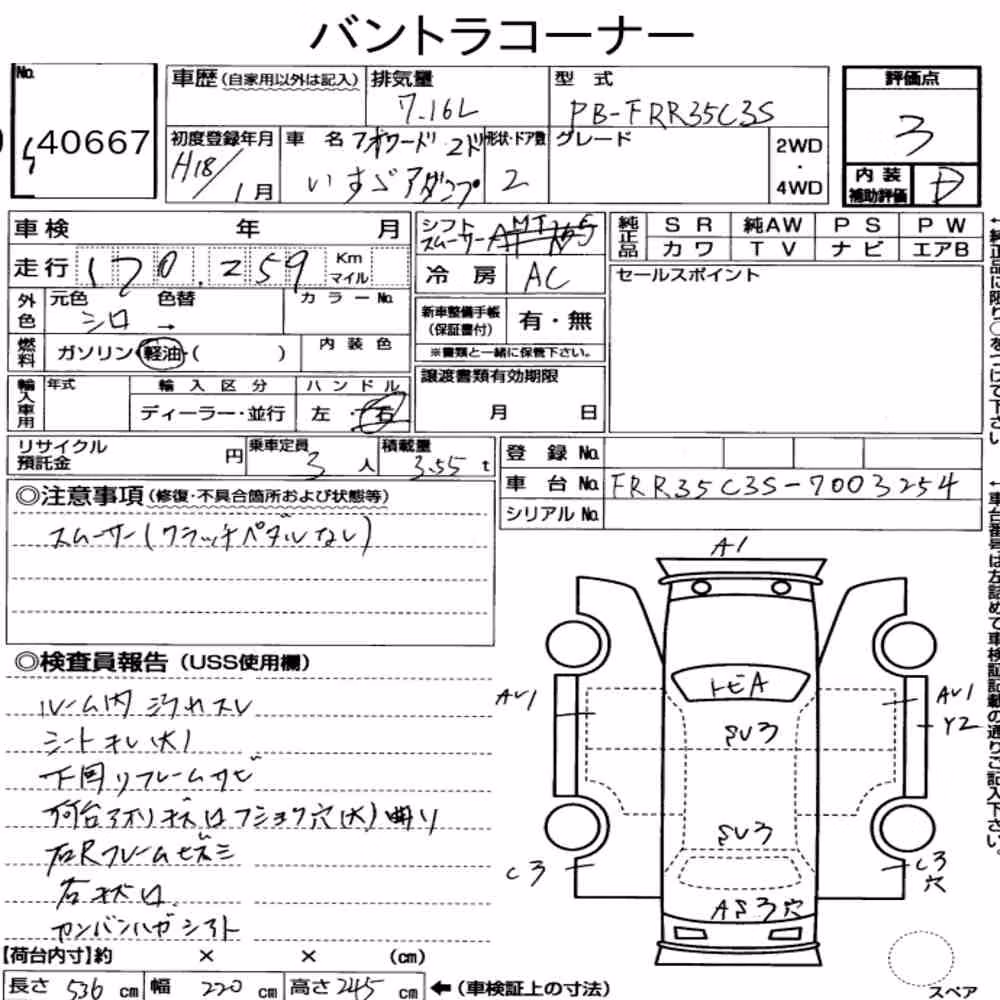 バントラコーナー
No.
40667
車歴(自家用以外は記入)
排気量
7.16L
型式
PB-FRR35C3S
評価点
3
初度登録年月
H18/1月
車名
フォワード 2ド
いすゞ ダンプ
形状・ドア数
2
グレード
2WD
・
4WD
内装
補助評価
D
車検 年 月
走行 170,259 Km マイル
シフト
スムーサー
MT
冷房 AC
純正品
SR 純AW PS PW
カワ TV ナビ エアB
セールスポイント
外色
元色 シロ → 色替
カラーNo.
新車整備手帳
(保証書付)
有・無
※書類と一緒に保管下さい。
燃料
ガソリン・軽油・( )
内装色
譲渡書類有効期限
月 日
輸入車用
年式
輸入区分
ディーラー・並行
ハンドル
左・右
リサイクル
預託金
円
乗車定員
3人
積載量
3.55t
登録No.
車台No. FRR35C3S-7003254
シリアルNo.
◎注意事項(修復・不具合箇所および状態等)
スムーサー(クラッチペダルなし)
◎検査員報告(USS使用欄)
ルーム内 汚れスレ
シートキレ(大)
下回リフレームサビ
荷台アオリ状口フショク穴(大)曲り
右Rフレームセズミ
カンバンハガシアト
【荷台内寸】約 × × (cm)
長さ 536 cm 幅 220 cm 高さ 245 cm ←(車検証上の寸法)
A1
トビA
SU3
AU1
AU1
Y2
SU3
C3
C3
穴
AS3穴
スペア
←純正品に限り○をつけて下さい
←車台番号は左詰めで車検証記載の通りご記入下さい。